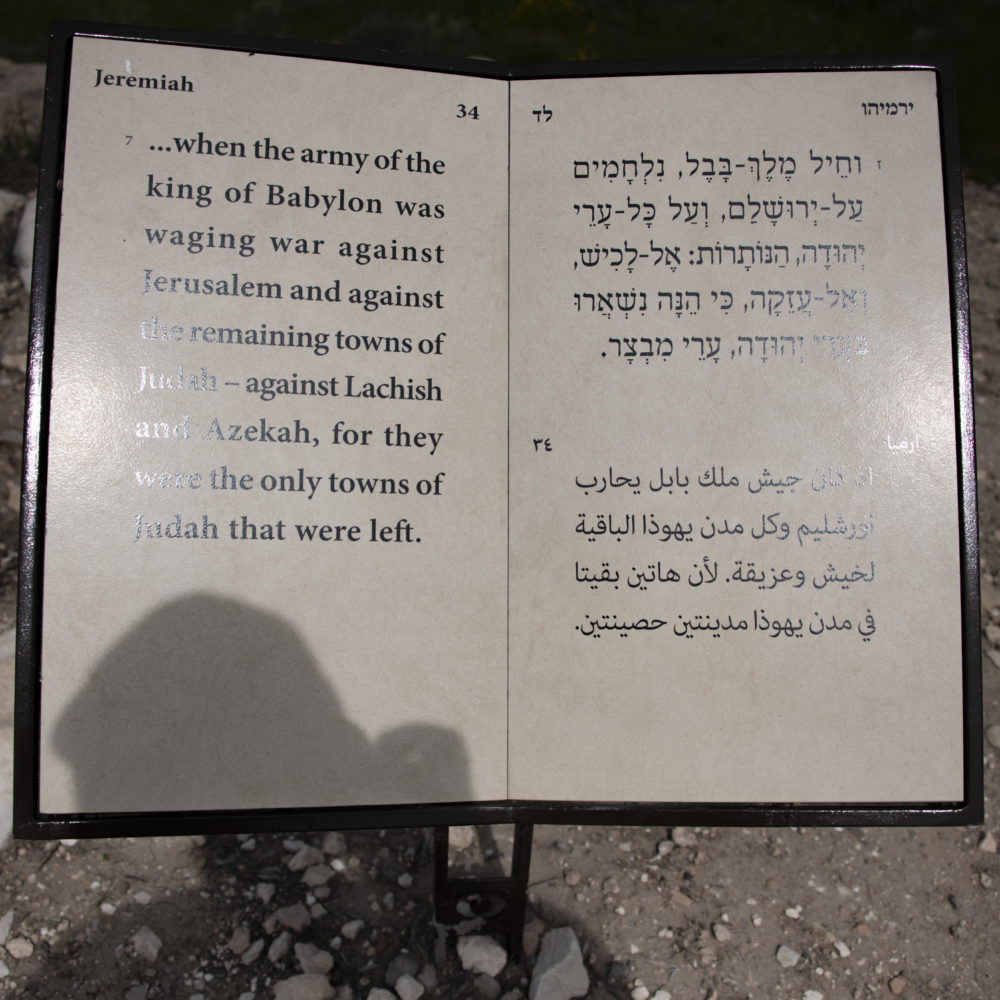 Jeremiah
34
7 ...when the army of the
king of Babylon was
waging war against
Jerusalem and against
the remaining towns of
Judah – against Lachish
and Azekah, for they
were the only towns of
Judah that were left.
ירמיהו
לד
ז וְחֵיל מֶלֶךְ-בָּבֶל, נִלְחָמִים
עַל-יְרוּשָׁלִַם, וְעַל כָּל-עָרֵי
יְהוּדָה, הַנּוֹתָרוֹת: אֶל-לָכִישׁ,
וְאֶל-עֲזֵקָה, כִּי הֵנָּה נִשְׁאֲרוּ
בְּעָרֵי יְהוּדָה, עָרֵי מִבְצָר.
٣٤
اذ كان جيش ملك بابل يحارب
اورشليم وكل مدن يهوذا الباقية
لخيش وعزيقة. لأن هاتين بقيتا
في مدن يهوذا مدينتين حصينتين.